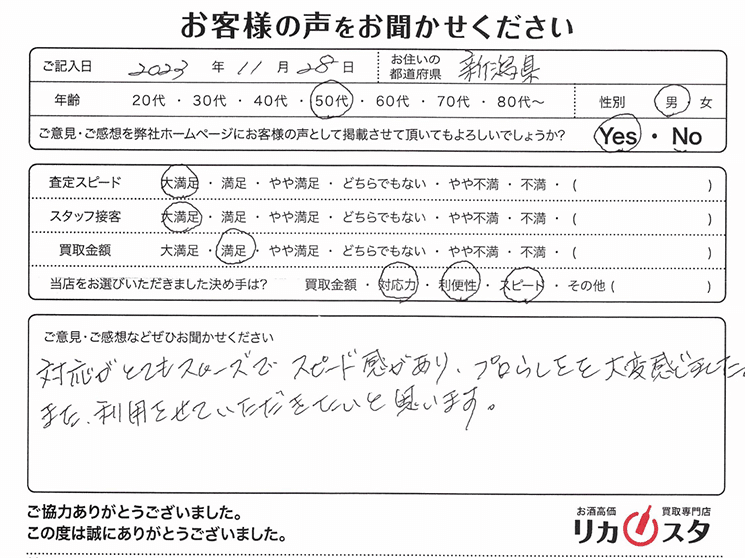 お客様の声をお聞かせください
ご記入日 2023 年 11 月 28 日 お住いの都道府県 新潟県
年齢 20代 ・ 30代 ・ 40代 ・ 50代 ・ 60代 ・ 70代 ・ 80代～ 性別 男 ・ 女
ご意見・ご感想を弊社ホームページにお客様の声として掲載させて頂いてもよろしいでしょうか? Yes ・ No
査定スピード 大満足 ・ 満足 ・ やや満足 ・ どちらでもない ・ やや不満 ・ 不満 ・ ( )
スタッフ接客 大満足 ・ 満足 ・ やや満足 ・ どちらでもない ・ やや不満 ・ 不満 ・ ( )
買取金額 大満足 ・ 満足 ・ やや満足 ・ どちらでもない ・ やや不満 ・ 不満 ・ ( )
当店をお選びいただきました決め手は? 買取金額 ・ 対応力 ・ 利便性 ・ スピード ・ その他 ( )
ご意見・ご感想などぜひお聞かせください
対応がとてもスムーズで スピード感があり、プロらしさを大変感じました。
また、利用させていただきたいと思います。
ご協力ありがとうございました。
この度は誠にありがとうございました。
お酒高価 買取専門店
リカスタ